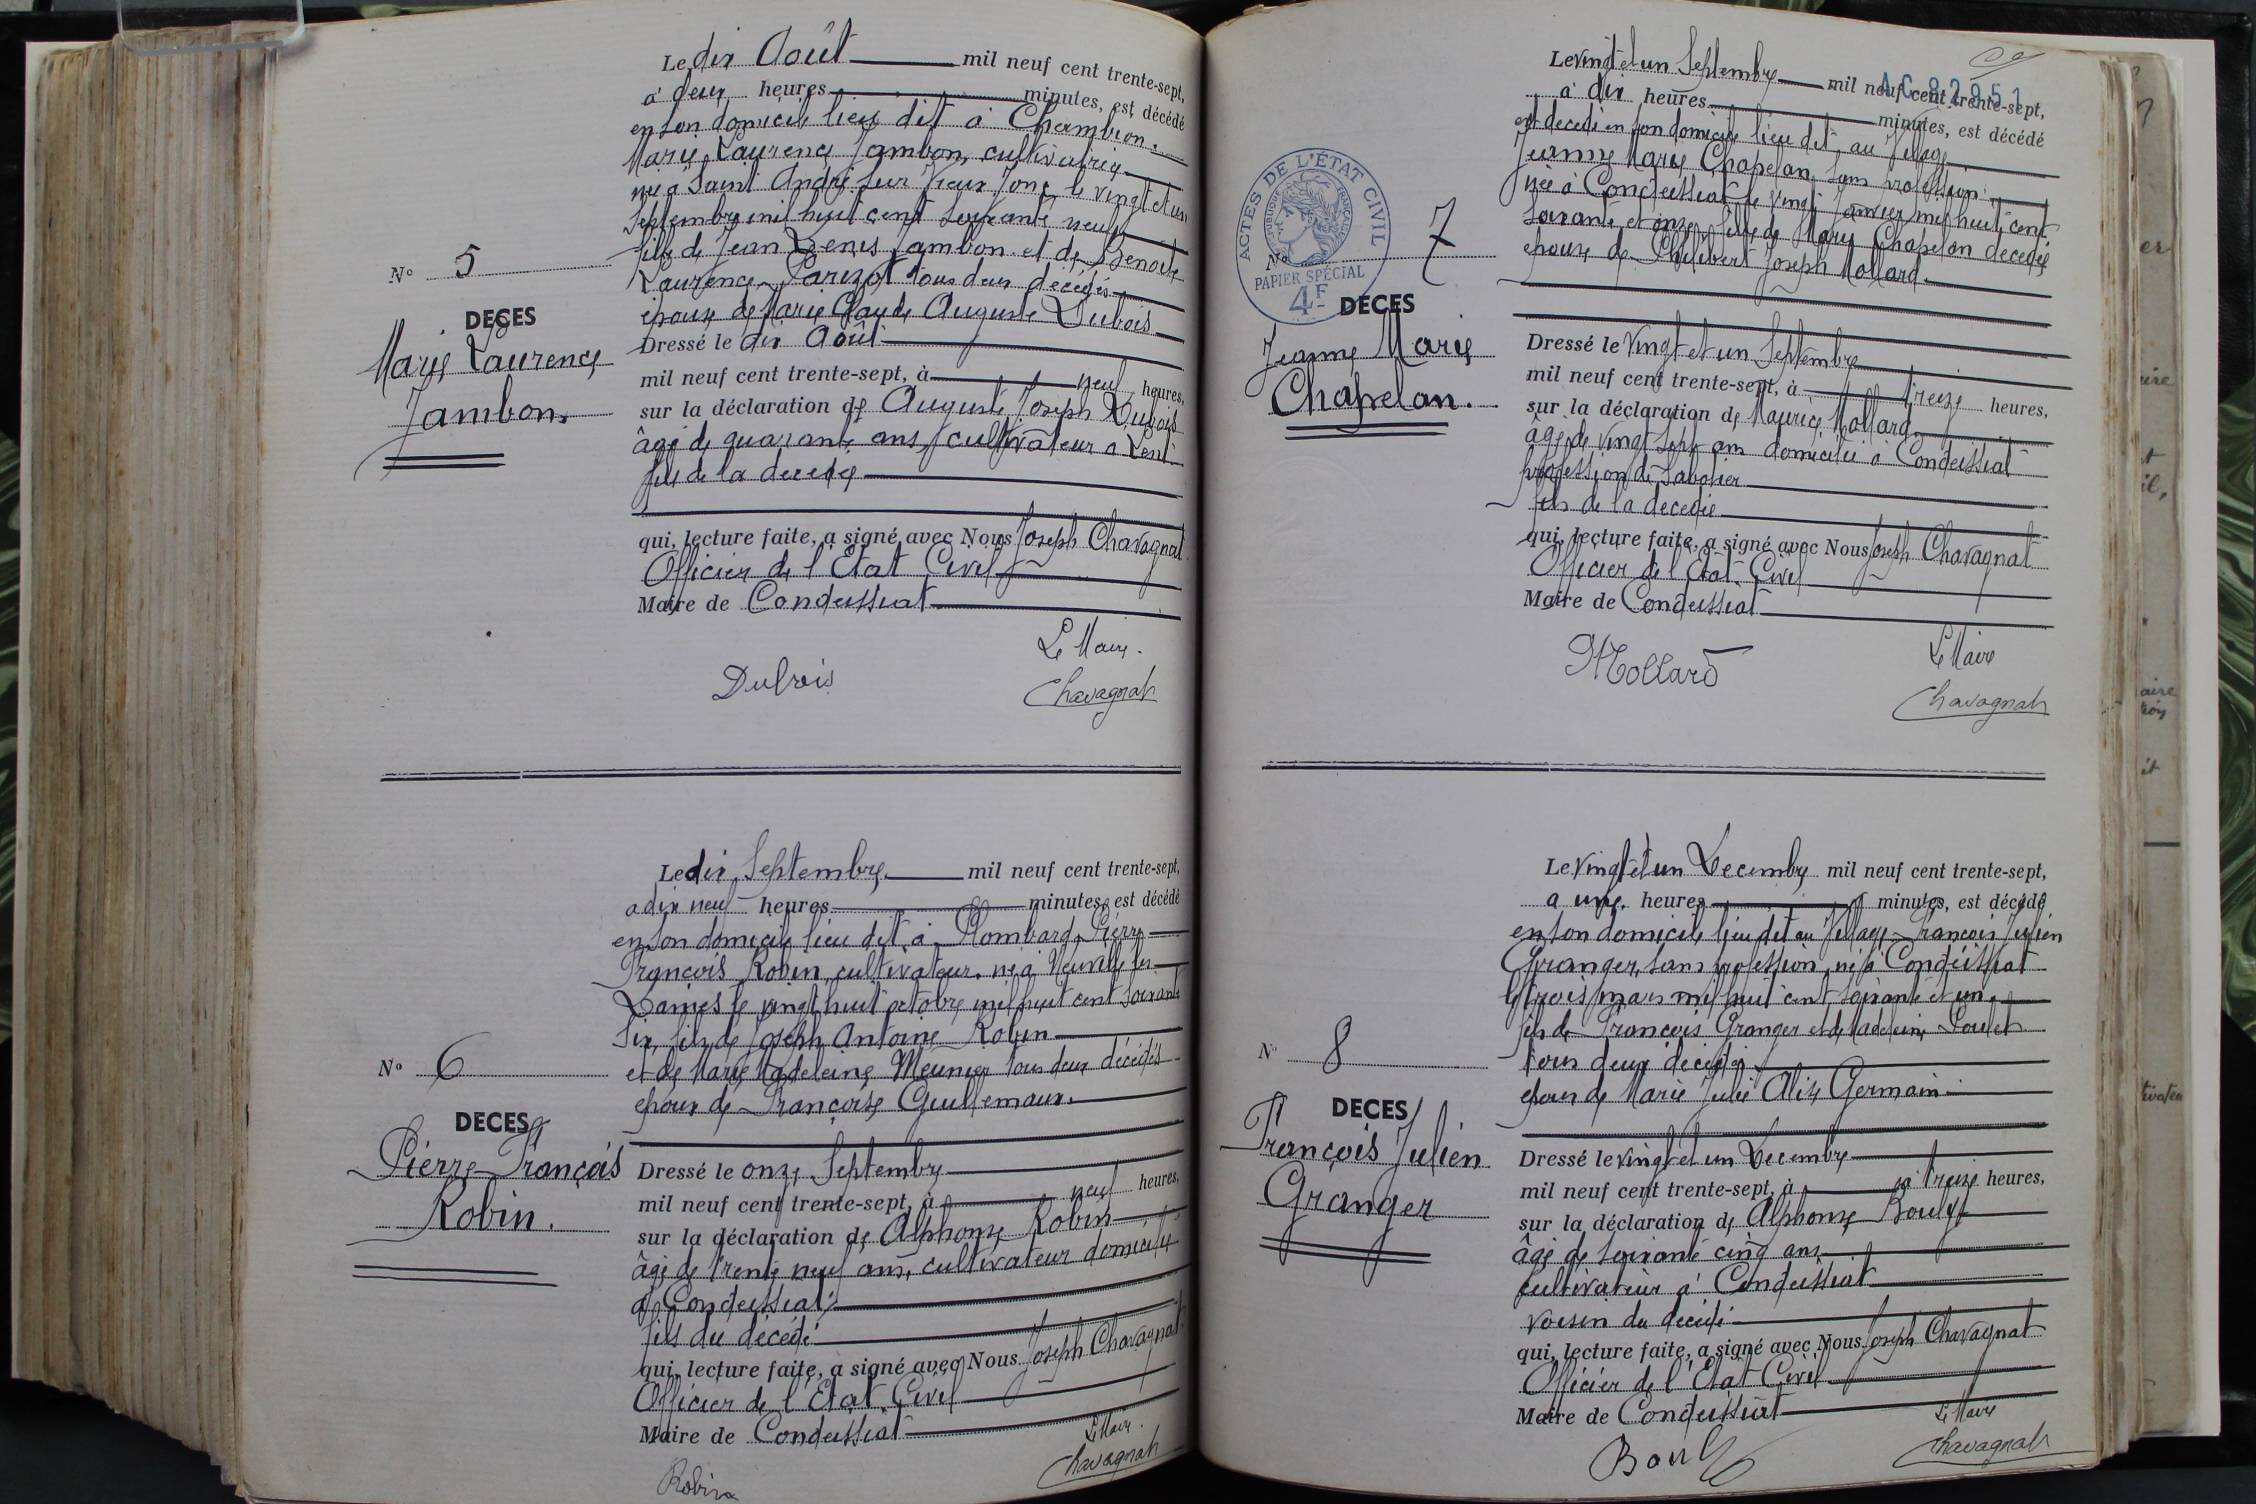 Le dix Août mil neuf cent trente-sept,
à deux heures minutes, est décédé
en son domicile lieu dit à Chambion.
Marie Laurence Jambon, cultivatrice
née à Saint André sur Vieux Jonc le vingt et un
Septembre mil huit cent soixante neuf
fille de Jean Denis Jambon et de Benoite
Laurence Parizot tous deux décédés
épouse de Marie Claude Auguste Dubois
Dressé le dix Août
mil neuf cent trente-sept, à neuf heures,
sur la déclaration de Auguste Joseph Dubois
âgé de quarante ans, cultivateur à Lent
fils de la décédée
qui, lecture faite, a signé avec Nous Joseph Chavagnat
Officier de l'État Civil
Maire de Condeissiat
Le Maire.
Dubois
Chavagnat
N° 5
DECES
Marie Laurence
Jambon.
Le dix Septembre mil neuf cent trente-sept,
a dix neuf heures minutes, est décédé
en son domicile lieu dit à Plombard Pierre
François Robin, cultivateur. né à Neuville les
Dames le vingt huit octobre mil huit cent soixante
six, fils de Joseph Antoine Robin
et de Marie Madeleine Meunier tous deux décédés
époux de Françoise Guillemaux.
Dressé le onze Septembre
mil neuf cent trente-sept, à neuf heures,
sur la déclaration de Alphonse Robin
âgé de trente neuf ans, cultivateur domicilié
à Condeissiat
fils du décédé
qui, lecture faite, a signé avec Nous Joseph Chavagnat
Officier de l'État Civil
Maire de Condeissiat
Le Maire.
Robin
Chavagnat
N° 6
DECES
Pierre François
Robin.
AC 82951
Le vingt et un Septembre mil neuf cent trente-sept,
à dix heures minutes, est décédé
est décédée en son domicile lieu dit au Village
Jeanne Marie Chapelan sans profession
née à Condeissiat le vingt Janvier mil huit cent
soixante et onze, fille de Marie Chapelan décédée
épouse de Philibert Joseph Mollard.
Dressé le vingt et un Septembre
mil neuf cent trente-sept, à treize heures,
sur la déclaration de Maurice Mollard
âgé de vingt sept ans domicilié à Condeissiat
profession de Sabotier
fils de la décédée
qui, lecture faite, a signé avec Nous Joseph Chavagnat
Officier de l'État Civil
Maire de Condeissiat
Le Maire
Mollard
Chavagnat
ACTES DE L'ÉTAT CIVIL
RÉPUBLIQUE FRANÇAISE
PAPIER SPÉCIAL
4F
N° 7
DECES
Jeanne Marie
Chapelan.
Le vingt et un Decembre mil neuf cent trente-sept,
a une heures minutes, est décédé
en son domicile lieu dit au Village François Julien
Granger, sans profession, né à Condeissiat
le trois mars mil huit cent soixante et un
fils de François Granger et de Madeleine
tous deux décédés
époux de Marie Julie Alix Germain
Dressé le vingt et un Decembre
mil neuf cent trente-sept, à à treize heures,
sur la déclaration de Alphonse
âgé de soixante cinq ans
cultivateur à Condeissiat
voisin du décédé
qui, lecture faite, a signé avec Nous Joseph Chavagnat
Officier de l'État Civil
Maire de Condeissiat
Le Maire
Chavagnat
N° 8
DECES
François Julien
Granger